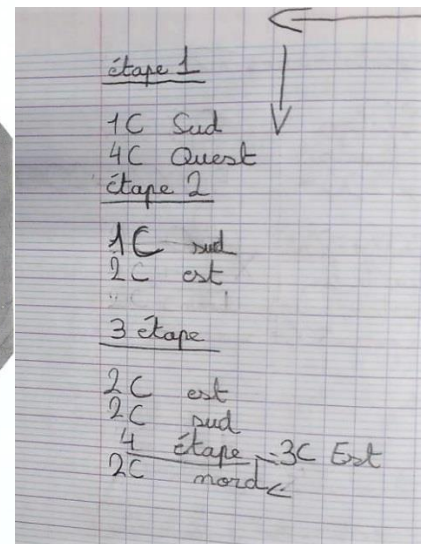 étape 1
1C Sud
4C Ouest
étape 2
1C sud
2C est
3 étape
2C est
2C sud
4 étape 3C Est
2C nord